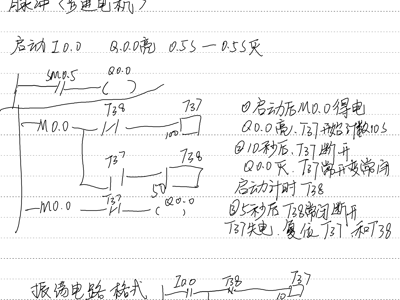 脉冲（步进电机）
启动 I0.0  Q0.0亮 0.5S — 0.5S灭
SM0.5 Q0.0
( )
T38 T37
M0.0
100
T37 T38
50
T37
M0.0 (Q0.0)
①启动后M0.0得电
Q0.0亮、T37开始计数10S
②10秒后、T37断开
Q0.0灭、T37常开变常闭
启动计时 T38
③5秒后T38常闭断开
T37失电、复位T37和T38
振荡电路格式
I0.0 T38 T37